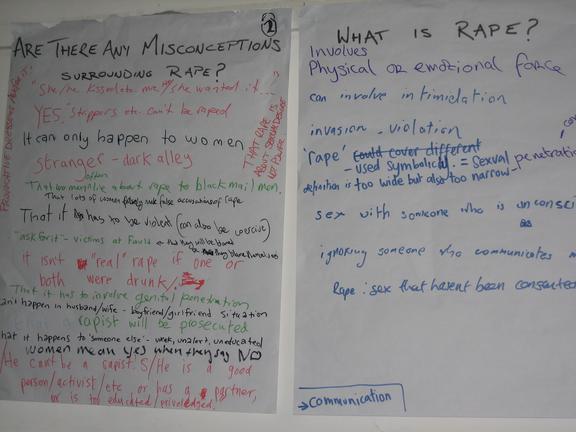 2
ARE THERE ANY MISCONCEPTIONS
SURROUNDING RAPE?
"She/he kissed etc me, s/he wanted it..."
YES. Strippers etc. can't be raped
It can only happen to women
stranger - dark alley
That women often lie about rape to blackmail men.
That lots of women falsely make false accusations of rape
That it has to be violent (can also be coercive)
"ask for it" - victims at Fault
it isn't "real" rape if one or
both were drunk/
That it has to involve genital penetration
can't happen in husband/wife - boyfriend/girlfriend situation
rapist will be prosecuted
that it happens to 'someone else' - weak, unalert, uneducated
women mean yes when they say NO
S/He can't be a rapist. S/He is a good
person/activist/etc or has a partner,
or is to educated/priveledged.
THAT RAPE IS
ABOUT SEXUAL DESIRE
NOT POWER
WHAT IS RAPE?
Involves
Physical or emotional force
can involve intimidation
invasion - violation
'rape' could cover different
- used symbolical. = Sexual penetration
definition is too wide but also too narrow -
sex with someone who is unconsci
ignoring someone who communicates
Rape: sex that hasent been consented
→ Communication